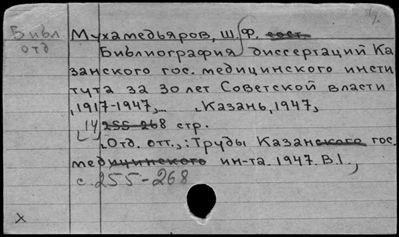 Библ. Мухамедьяров, Ш.Ф. сост.
отд Библиография диссертаций Ка
занского гос. медицинского инсти
тута за 30 лет Советской власти
,1917-1947,... ,Казань, 1947,
14 255-268 стр.
,Отд. отт.,: Труды Казанского гос.
медицинского ин-та. 1947. В.1.,
с. 255-268
x